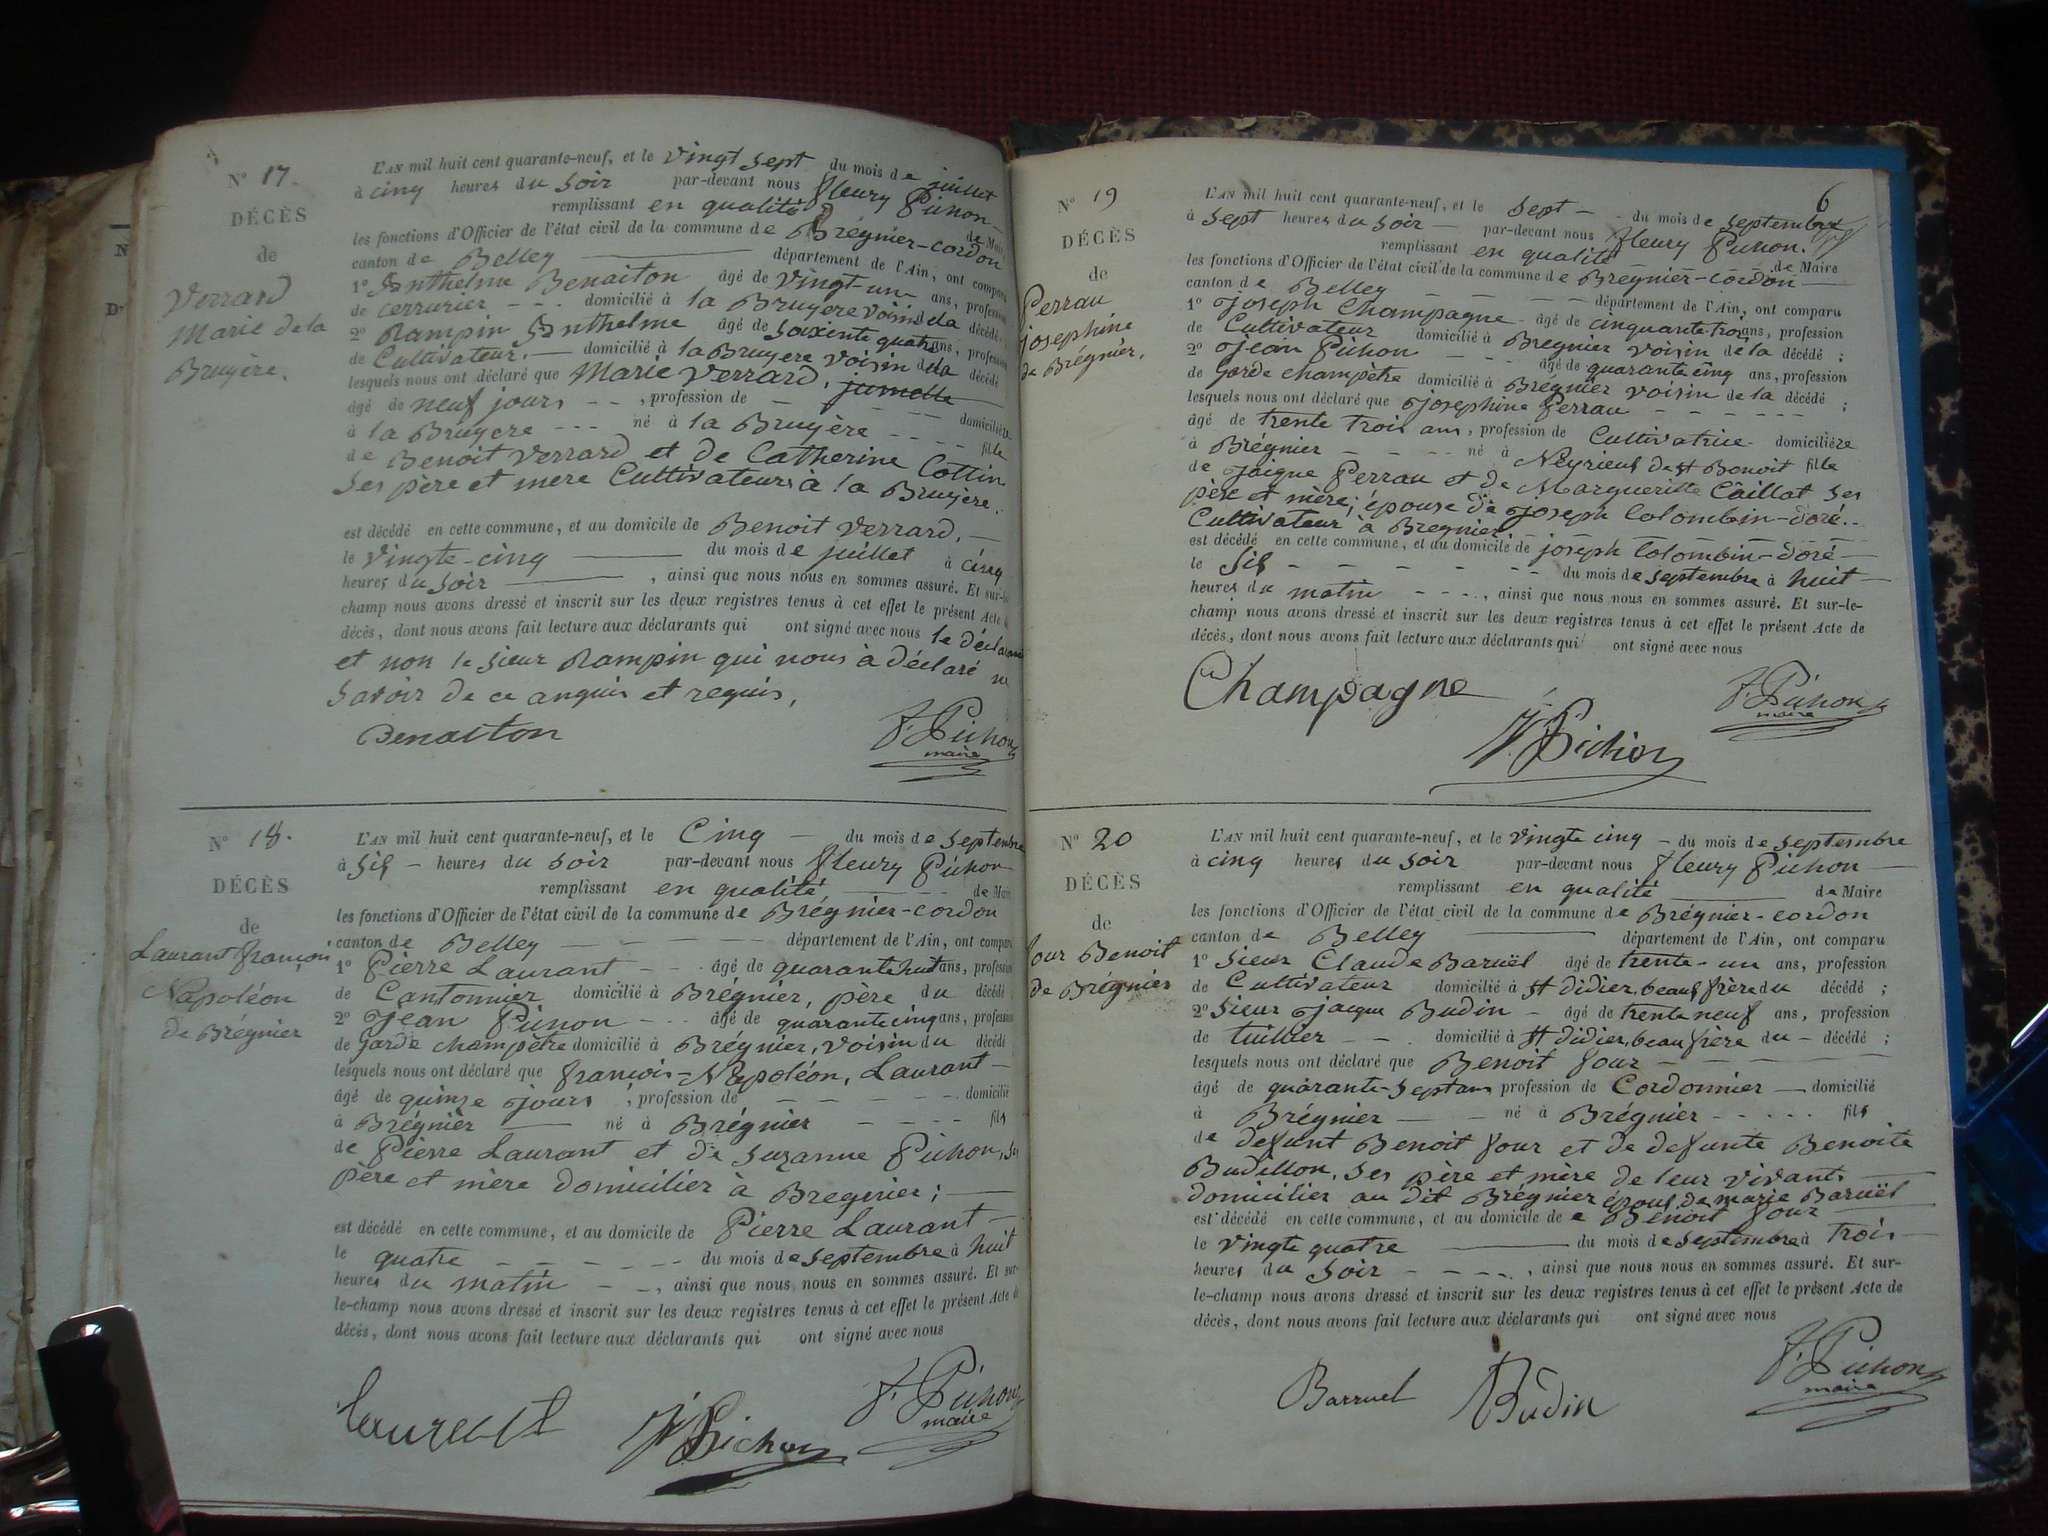 N° 17.
DÉCÈS
de
Verrard
Marie de la
Bruyère.
L'AN mil huit cent quarante-neuf, et le vingt sept du mois de juillet
à cinq heures du soir par-devant nous fleury Pichon
remplissant en qualité de Maire
les fonctions d'Officier de l'état civil de la commune de Brégnier-cordon
canton de Belley département de l'Ain, ont comparu
1° Anthelme Benaiton âgé de vingt-un ans, profession
de cerrurier - - - domicilié à la Bruyere voisin de la décédé
2° Rampin Anthelme âgé de soixente quatre ans, profession
de Cultivateur. — domicilié à la Bruyere voisin de la décédé
lesquels nous ont déclaré que Marie Verrard, jumelle
âgé de neuf jours - - , profession de - - domiciliée
à la Bruyere - - - né à la Bruyère - - - - fille
de Benoit Verrard et de Catherine Cottin
Ses père et mere Cultivateurs a la Bruyère.
est décédé en cette commune, et au domicile de Benoit Verrard. —
le vingte-cinq — du mois de juillet à cinq
heures du soir — , ainsi que nous nous en sommes assuré. Et sur-le-
champ nous avons dressé et inscrit sur les deux registres tenus à cet effet le présent Acte de
décès, dont nous avons fait lecture aux déclarants qui ont signé avec nous le déclarant
et non le sieur Rampin qui nous à déclaré ne
Savoir de ce anquis et requis,
Benaiton F. Pichon
maire
N° 18.
DÉCÈS
de
Laurant françois
Napoléon
de Brégnier
L'AN mil huit cent quarante-neuf, et le Cinq — du mois de septembre
à Six - heures du soir par-devant nous fleury Pichon
remplissant en qualité — de Maire
les fonctions d'Officier de l'état civil de la commune de Brégnier-cordon
canton de Belley - - - - département de l'Ain, ont comparu
1° Pierre Laurant - - - âgé de quarante huit ans, profession
de Cantonnier domicilié à Brégnier, père du décédé
2° Jean Pichon - - - âgé de quarante cinq ans, profession
de Garde champètre domicilié à Brégnier, voisin du décédé
lesquels nous ont déclaré que françois-Napoléon, Laurant —
âgé de quinze jours , profession de - - - - - domicilié
à Brégnier — né à Brégnier - - - - fils
de Pierre Laurant et de Suzanne Pichon, ses
père et mère domicilier à Bregnier; —
est décédé en cette commune, et au domicile de Pierre Laurant —
le quatre - - - - - - du mois de septembre à huit
heures du matin - - , ainsi que nous nous en sommes assuré. Et sur-
le-champ nous avons dressé et inscrit sur les deux registres tenus à cet effet le présent Acte de
décès, dont nous avons fait lecture aux déclarants qui ont signé avec nous
Laurent Pichon F. Pichon
maire
6
N° 19
DÉCÈS
de
Perrau
josephine
de Brégnier.
L'AN mil huit cent quarante-neuf, et le sept - - du mois de septembre
à sept heures du soir — par-devant nous fleury Pichon.
remplissant en qualité de Maire
les fonctions d'Officier de l'état civil de la commune de Bregnier-cordon —
canton de Belley - - - - département de l'Ain, ont comparu
1° joseph Champagne - âgé de cinquante trois ans, profession
de Cultivateur domicilié à Bregnier voisin de la décédé ;
2° Jean Pichon - - - âgé de quarante cinq ans, profession
de Garde champètre domicilié à Brégnier voisin de la décédé ;
lesquels nous ont déclaré que josephine Perrau - - - - - -
âgé de trente trois ans, profession de Cultivatrice - domiciliée
à Brégnier - - - - né à Neyrieu de st Benoit fille
de Jacque Perrau et de Margueritte Caillat ses
père et mère; épouse de joseph Colombin-doré..
Cultivateur à Bregnier
est décédé en cette commune, et au domicile de joseph Colombin-doré —
le Six - - - - - - du mois de septembre à huit —
heures du matin - - - -, ainsi que nous nous en sommes assuré. Et sur-le-
champ nous avons dressé et inscrit sur les deux registres tenus à cet effet le présent Acte de
décès, dont nous avons fait lecture aux déclarants qui ont signé avec nous
Champagne F. Pichon
maire
Pichon
N° 20
DÉCÈS
de
four Benoit
de Brégnier
L'AN mil huit cent quarante-neuf, et le vingte cinq - du mois de septembre
à cinq heures du soir par-devant nous fleury Pichon —
remplissant en qualité — de Maire
les fonctions d'Officier de l'état civil de la commune de Brégnier-cordon
canton de Belley — département de l'Ain, ont comparu
1° Sieur Claude Baruël âgé de trente-un ans, profession
de Cultivateur domicilié à St didier, beau frère du décédé ;
2° Sieur jacque Budin - âgé de trente neuf ans, profession
de tuillier - - . domicilié à St didier, beau frère du - décédé ;
lesquels nous ont déclaré que Benoit four - - - - -
âgé de quarante-Sept ans profession de Cordonnier — domicilié
à Brégnier — né à Brégnier - - - - - fils
de defunt Benoit four et de defunte Benoite
Budillon, Ses père et mère de leur vivant —
domicilier au dit Brégnier époux de marie Baruël
est décédé en cette commune, et au domicile de Benoit four —
le vingte quatre — du mois de septembre à trois —
heures du soir - - - -, ainsi que nous nous en sommes assuré. Et sur-
le-champ nous avons dressé et inscrit sur les deux registres tenus à cet effet le présent Acte de
décès, dont nous avons fait lecture aux déclarants qui ont signé avec nous
Barruel Budin F. Pichon
maire